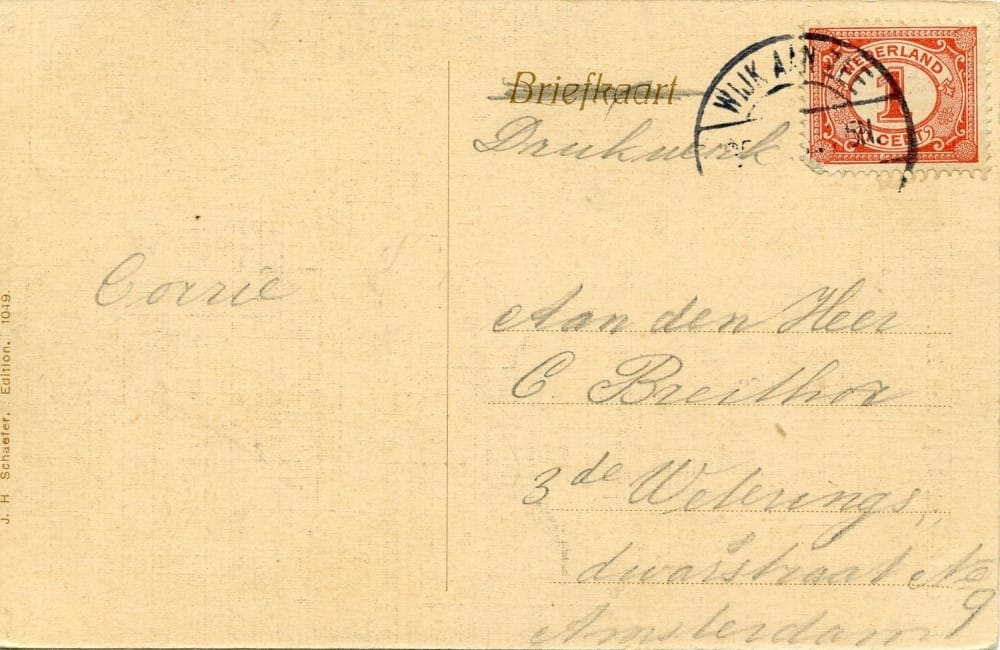 Briefkaart
Drukwerk
WIJK AAN ZEE
NEDERLAND
1
CENT
5N
Corrie
Aan den Heer
C. Breithor
3de Weterings
dwarsstraat No
9
Amsterdam
J. H Schaefer. Edition. 1049.